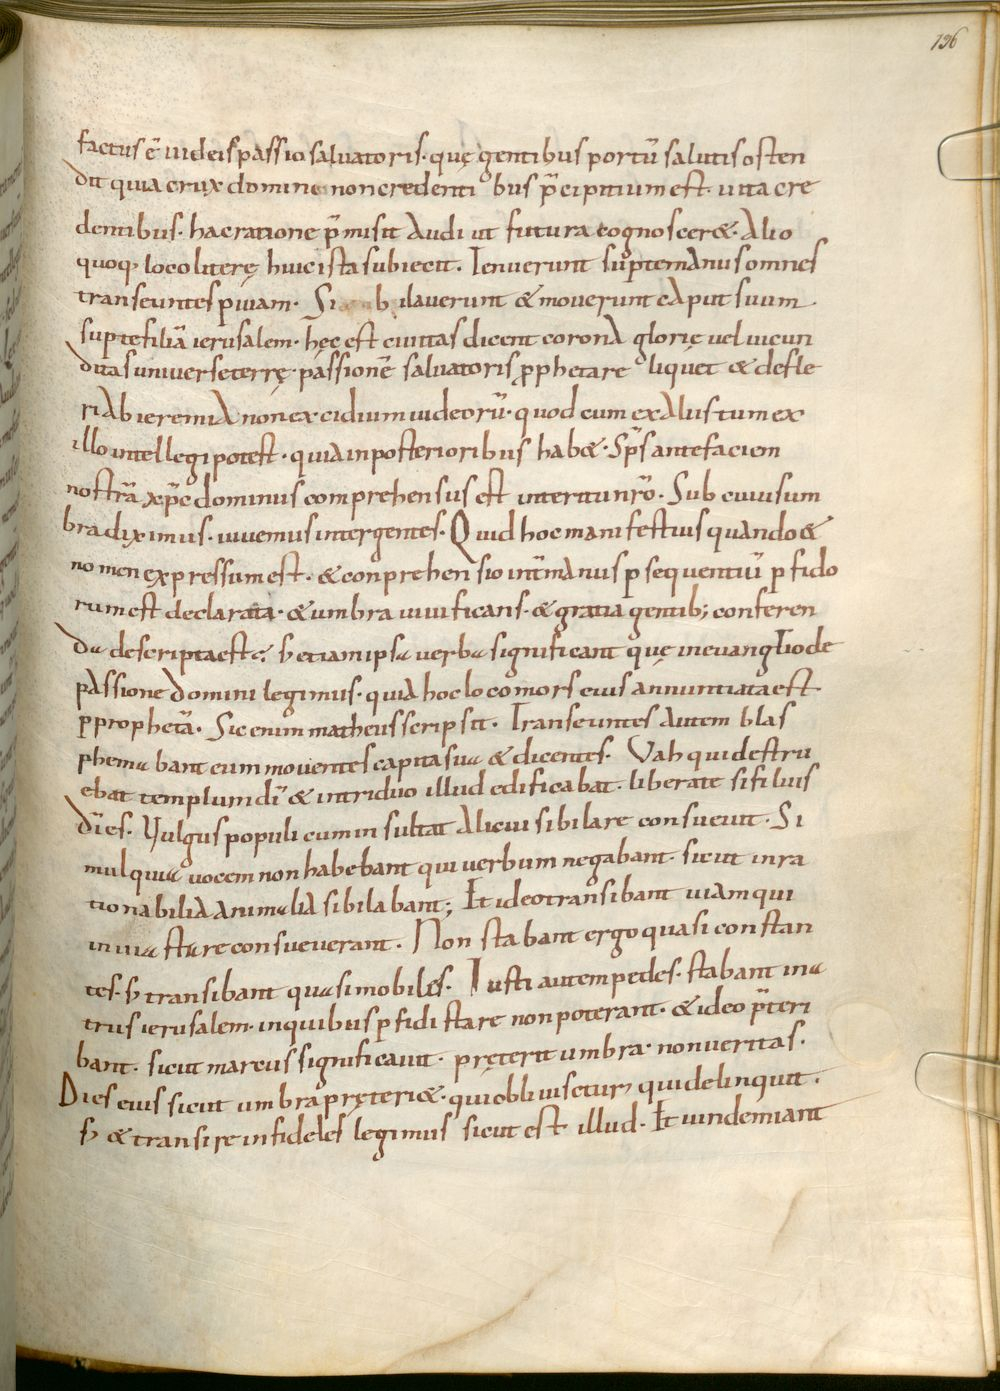 196
factus ē iudeis passio saluatoris · quę gentibus portū salutis osten
dit quia crux domini non credenti bus p̄cipitium est · uita cre
dentibus · hac ratione p̄misit Audi ut futura cognoscer& · Alio
quoq; loco literę huic ista subiecit . Ienuerunt sup te manus omnes
transeuntes p uiam · Si bilauerunt & mouerunt caput suum ·
sup te filiā ierusalem · hęc est ciuitas dicent corona glorię uel iucun
ditas uniuersę terrę · passionē saluatoris p̄phetare liquet & defle
ri Ab ieremia non excidium iudeorū · quod cum ex Aliis tum ex
illo intellegi potest · quia in posterioribus hab& · Sp̄s ante faciem
nostrā xp̄c dominus comprehensus est interitu nr̄o . Sub cuius um
bra diximus · uiuemus inter gentes · Quid hoc manifestius quando &
nomen expressum est · & conprehensio int̄ manus p sequentiū p fido
rum est declarata · & umbra uiuificans · & gratia gentib; conferen
da descripta est · ꞩ etiam ipsa uerba significant quę in euanglio de
passione domini legimus · quia hoc loco mors eius annuntiata est
p prophetā · Sic enim matheus scripsit · Transeuntes Autem blas
phema bant eum mouentes capita sua & dicentes · Vah qui destru
ebat templum dī & in triduo illud edificabat · liberate si filius
dī es · Uulgus populi cum in sultat Alicui sibilare consueuit · Si
mul quia uocem non habebant qui uerbum negabant · sicut inra
tionabilia animalia sibilabant ; Et ideo transibant uiam qui
in uia stare consueuerant . Non stabant ergo quasi constan
tes · ꞩ transibant quasi mobiles · Iusti autem pedes · stabant in a
triis ierusalem · in quibus p fidi stare non poterant · & ideo p̄teri
bant · sicut marcus significauit · pręterit umbra · non ueritas ·
Dies eius sicut umbra pręteri& · qui obliuisetur qui delinquit ·
ꞩ & transire infideles legimus sicut est illud · Et uindemiant